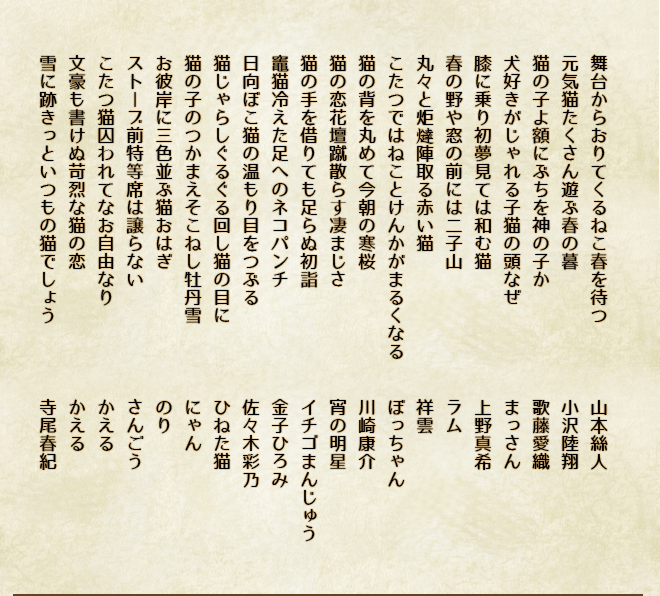 舞台からおりてくるねこ春を待つ
元気猫たくさん遊ぶ春の暮
猫の子よ額にぶちを神の子か
犬好きがじゃれる子猫の頭なぜ
膝に乗り初夢見ては和む猫
春の野や窓の前には二子山
丸々と炬燵陣取る赤い猫
こたつではねことけんかがまるくなる
猫の背を丸めて今朝の寒桜
猫の恋花壇蹴散らす凄まじさ
猫の手を借りても足らぬ初詣
竈猫冷えた足へのネコパンチ
日向ぼこ猫の温もり目をつぶる
猫じゃらしぐるぐる回し猫の目に
猫の子のつかまえそこねし牡丹雪
お彼岸に三色並ぶ猫おはぎ
ストーブ前特等席は譲らない
こたつ猫囚われてなお自由なり
文豪も書けぬ苛烈な猫の恋
雪に跡きっといつもの猫でしょう
山本絲人
小沢陸翔
歌藤愛織
まっさん
上野真希
ラム
祥雲
ぼっちゃん
川崎康介
宵の明星
イチゴまんじゅう
金子ひろみ
佐々木彩乃
ひねた猫
にゃん
のり
さんごう
かえる
かえる
寺尾春紀